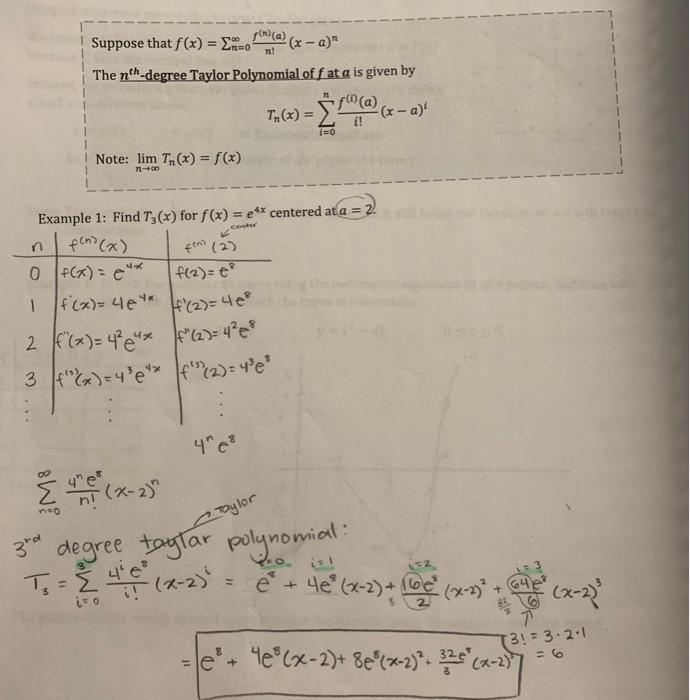 Suppose that f(x) = Σ_{n=0}^{∞} f^{(n)}(a)/n! (x − a)^n
The n^{th}-degree Taylor Polynomial of f at a is given by
T_n(x) = Σ_{i=0}^{n} f^{(i)}(a)/i! (x − a)^i
Note: lim_{n→∞} T_n(x) = f(x)
Example 1: Find T_3(x) for f(x) = e^{4x} centered at a = 2.
center
n f^{(n)}(x) f^{(n)}(2)
0 f(x) = e^{4x} f(2) = e^8
1 f'(x) = 4e^{4x} f'(2) = 4e^8
2 f''(x) = 4^2 e^{4x} f''(2) = 4^2 e^8
3 f^{(3)}(x) = 4^3 e^{4x} f^{(3)}(2) = 4^3 e^8
⋮ ⋮ ⋮
4^n e^8
Σ_{n=0}^{∞} 4^n e^8/n! (x-2)^n
Taylor
3^{rd} degree taylar polynomial:
i=0 i=1 i=2 i=3
T_3 = Σ_{i=0}^{3} 4^i e^8/i! (x-2)^i = e^8 + 4e^8 (x-2) + 16e^8/2 (x-2)^2 + 64e^8/6 (x-2)^3
8 32/3
3! = 3·2·1
= 6
= e^8 + 4e^8 (x-2) + 8e^8 (x-2)^2 + 32e^8/3 (x-2)^3